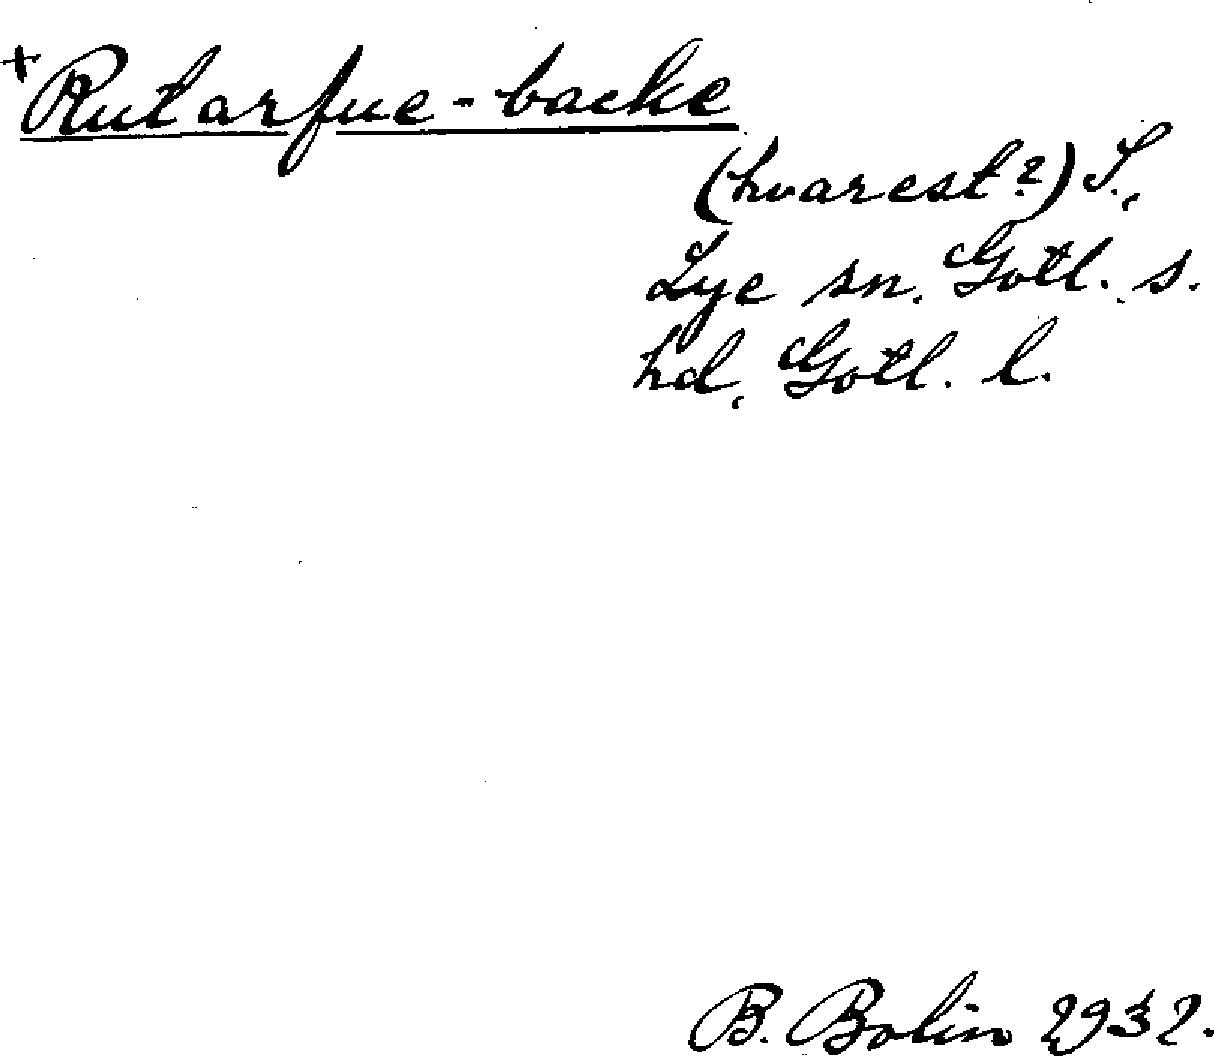 +Rutarfue-backe
(hvarest?) S.,
Lye sn, Gotl. s.
hd, Gotl. l.
B. Bolin 1932.